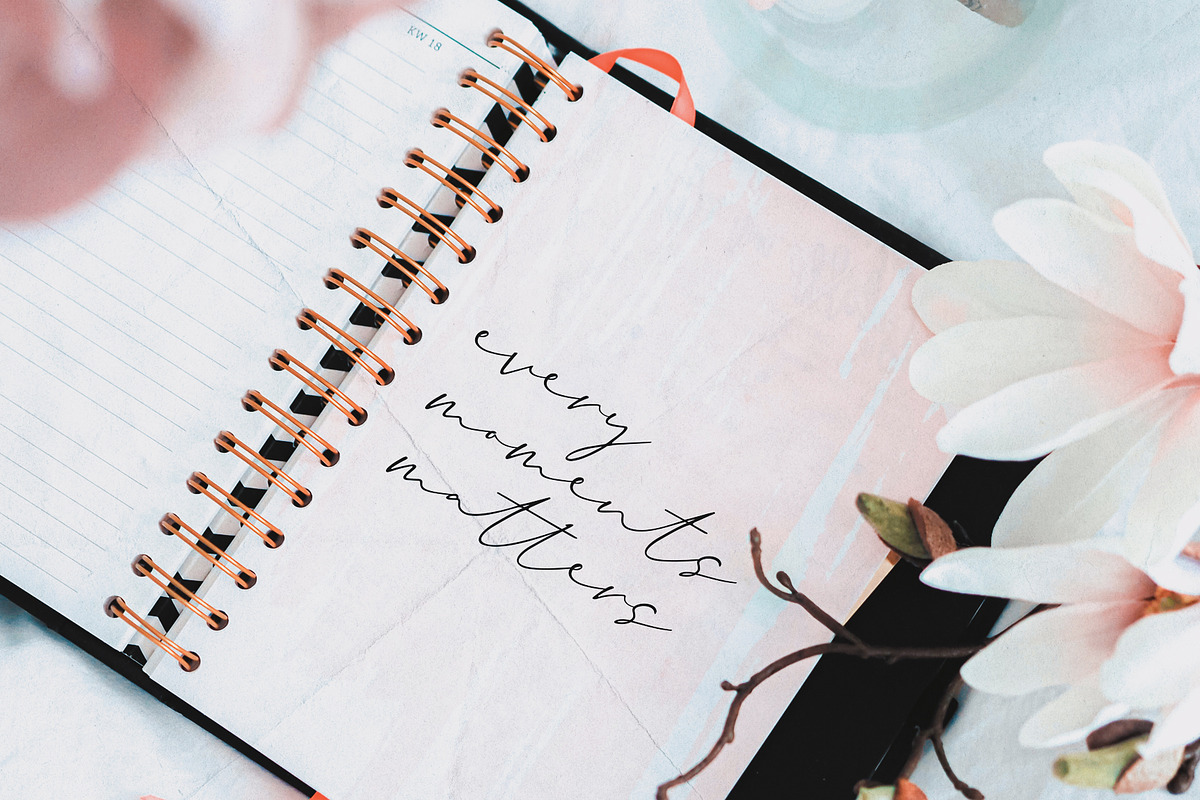 KW 18
every
moments
matters